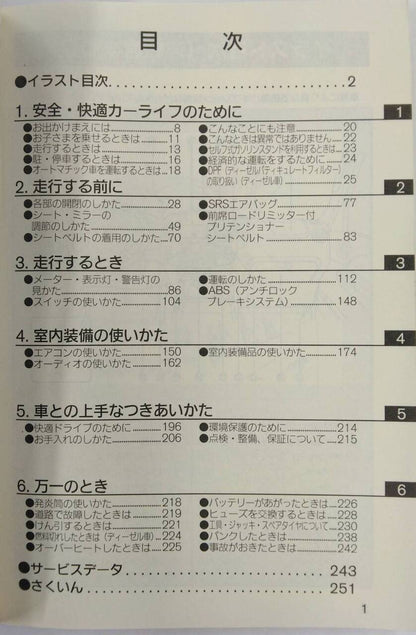 目　次
●イラスト目次 2
1. 安全・快適カーライフのために 1
●お出かけまえには 8
●お子さまを乗せるときは 11
●走行するときは 13
●駐・停車するときは 16
●オートマチック車を運転するときは 18
●こんなことにも注意 20
●こんなときは異常ではありません 22
●セルフガソリンスタンドを利用するときは 23
●経済的な運転をするために 24
●DPF（ディーゼルパティキュレートフィルター）
の取り扱い（ディーゼル車） 25
2. 走行する前に 2
●各部の開閉のしかた 28
●シート・ミラーの
調節のしかた 49
●シートベルトの着用のしかた 70
●SRSエアバッグ 77
●前席ロードリミッター付
プリテンショナー
シートベルト 83
3. 走行するとき 3
●メーター・表示灯・警告灯の
見かた 86
●スイッチの使いかた 104
●運転のしかた 112
●ABS（アンチロック
ブレーキシステム） 148
4. 室内装備の使いかた 4
●エアコンの使いかた 150
●オーディオの使いかた 162
●室内装備品の使いかた 174
5. 車との上手なつきあいかた 5
●快適ドライブのために 196
●お手入れのしかた 206
●環境保護のために 214
●点検・整備、保証について 215
6. 万一のとき 6
●発炎筒の使いかた 218
●道路で故障したときは 219
●けん引するときは 221
●燃料切れしたときは（ディーゼル車） 224
●オーバーヒートしたときは 225
●バッテリーがあがったときは 226
●ヒューズを交換するときは 228
●工具・ジャッキ・スペアタイヤについて 230
●パンクしたときは 238
●事故がおきたときは 242
●サービスデータ 243
●さくいん 251
1